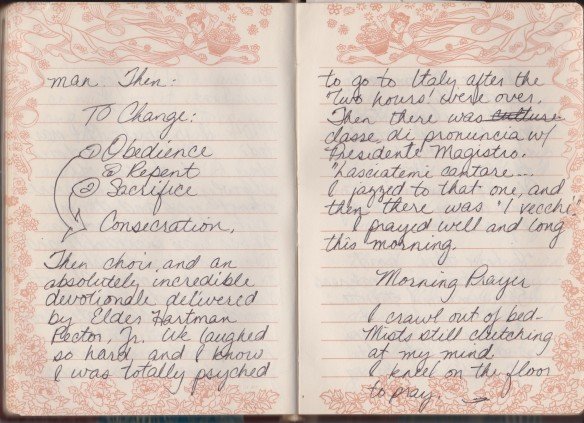 man. Then:
TO Change:
① Obedience
② Repent
③ Sacrifice
Consecration.
Then choir, and an
absolutely incredible
devotionale delivered
by Elder Hartman
Rector, Jr. We laughed
so hard, and I know
I was totally psyched
to go to Italy after the
"two hours" were over.
Then there was culture
classe di pronuncia w/
Presidente Magistro.
"Lasciatemi cantare...
I jazzed to that one, and
then there was "I vecchi."
I prayed well and long
this morning.
Morning Prayer
I crawl out of bed-
Mists still clutching
at my mind
I kneel on the floor
to pray.